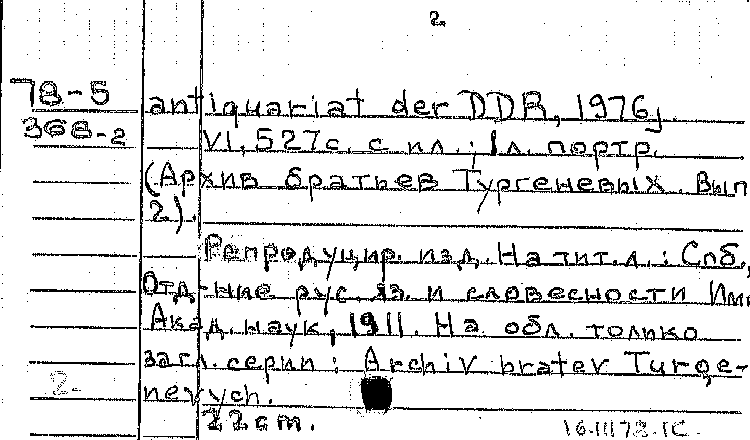 2.
78-5
368-2
antiquariat der DDR, 1976,
VI, 527с. с ил.; 1л. портр.
(Архив братьев Тургеневых. Вып
2).
Репродуцир. изд. На тит.л.: Спб.,
Отд-ние рус. яз. и словесности Имп
Акад. наук, 1911. На обл. только
загл. серии: Archiv bratev Turge-
nevych.
2.
22cm.